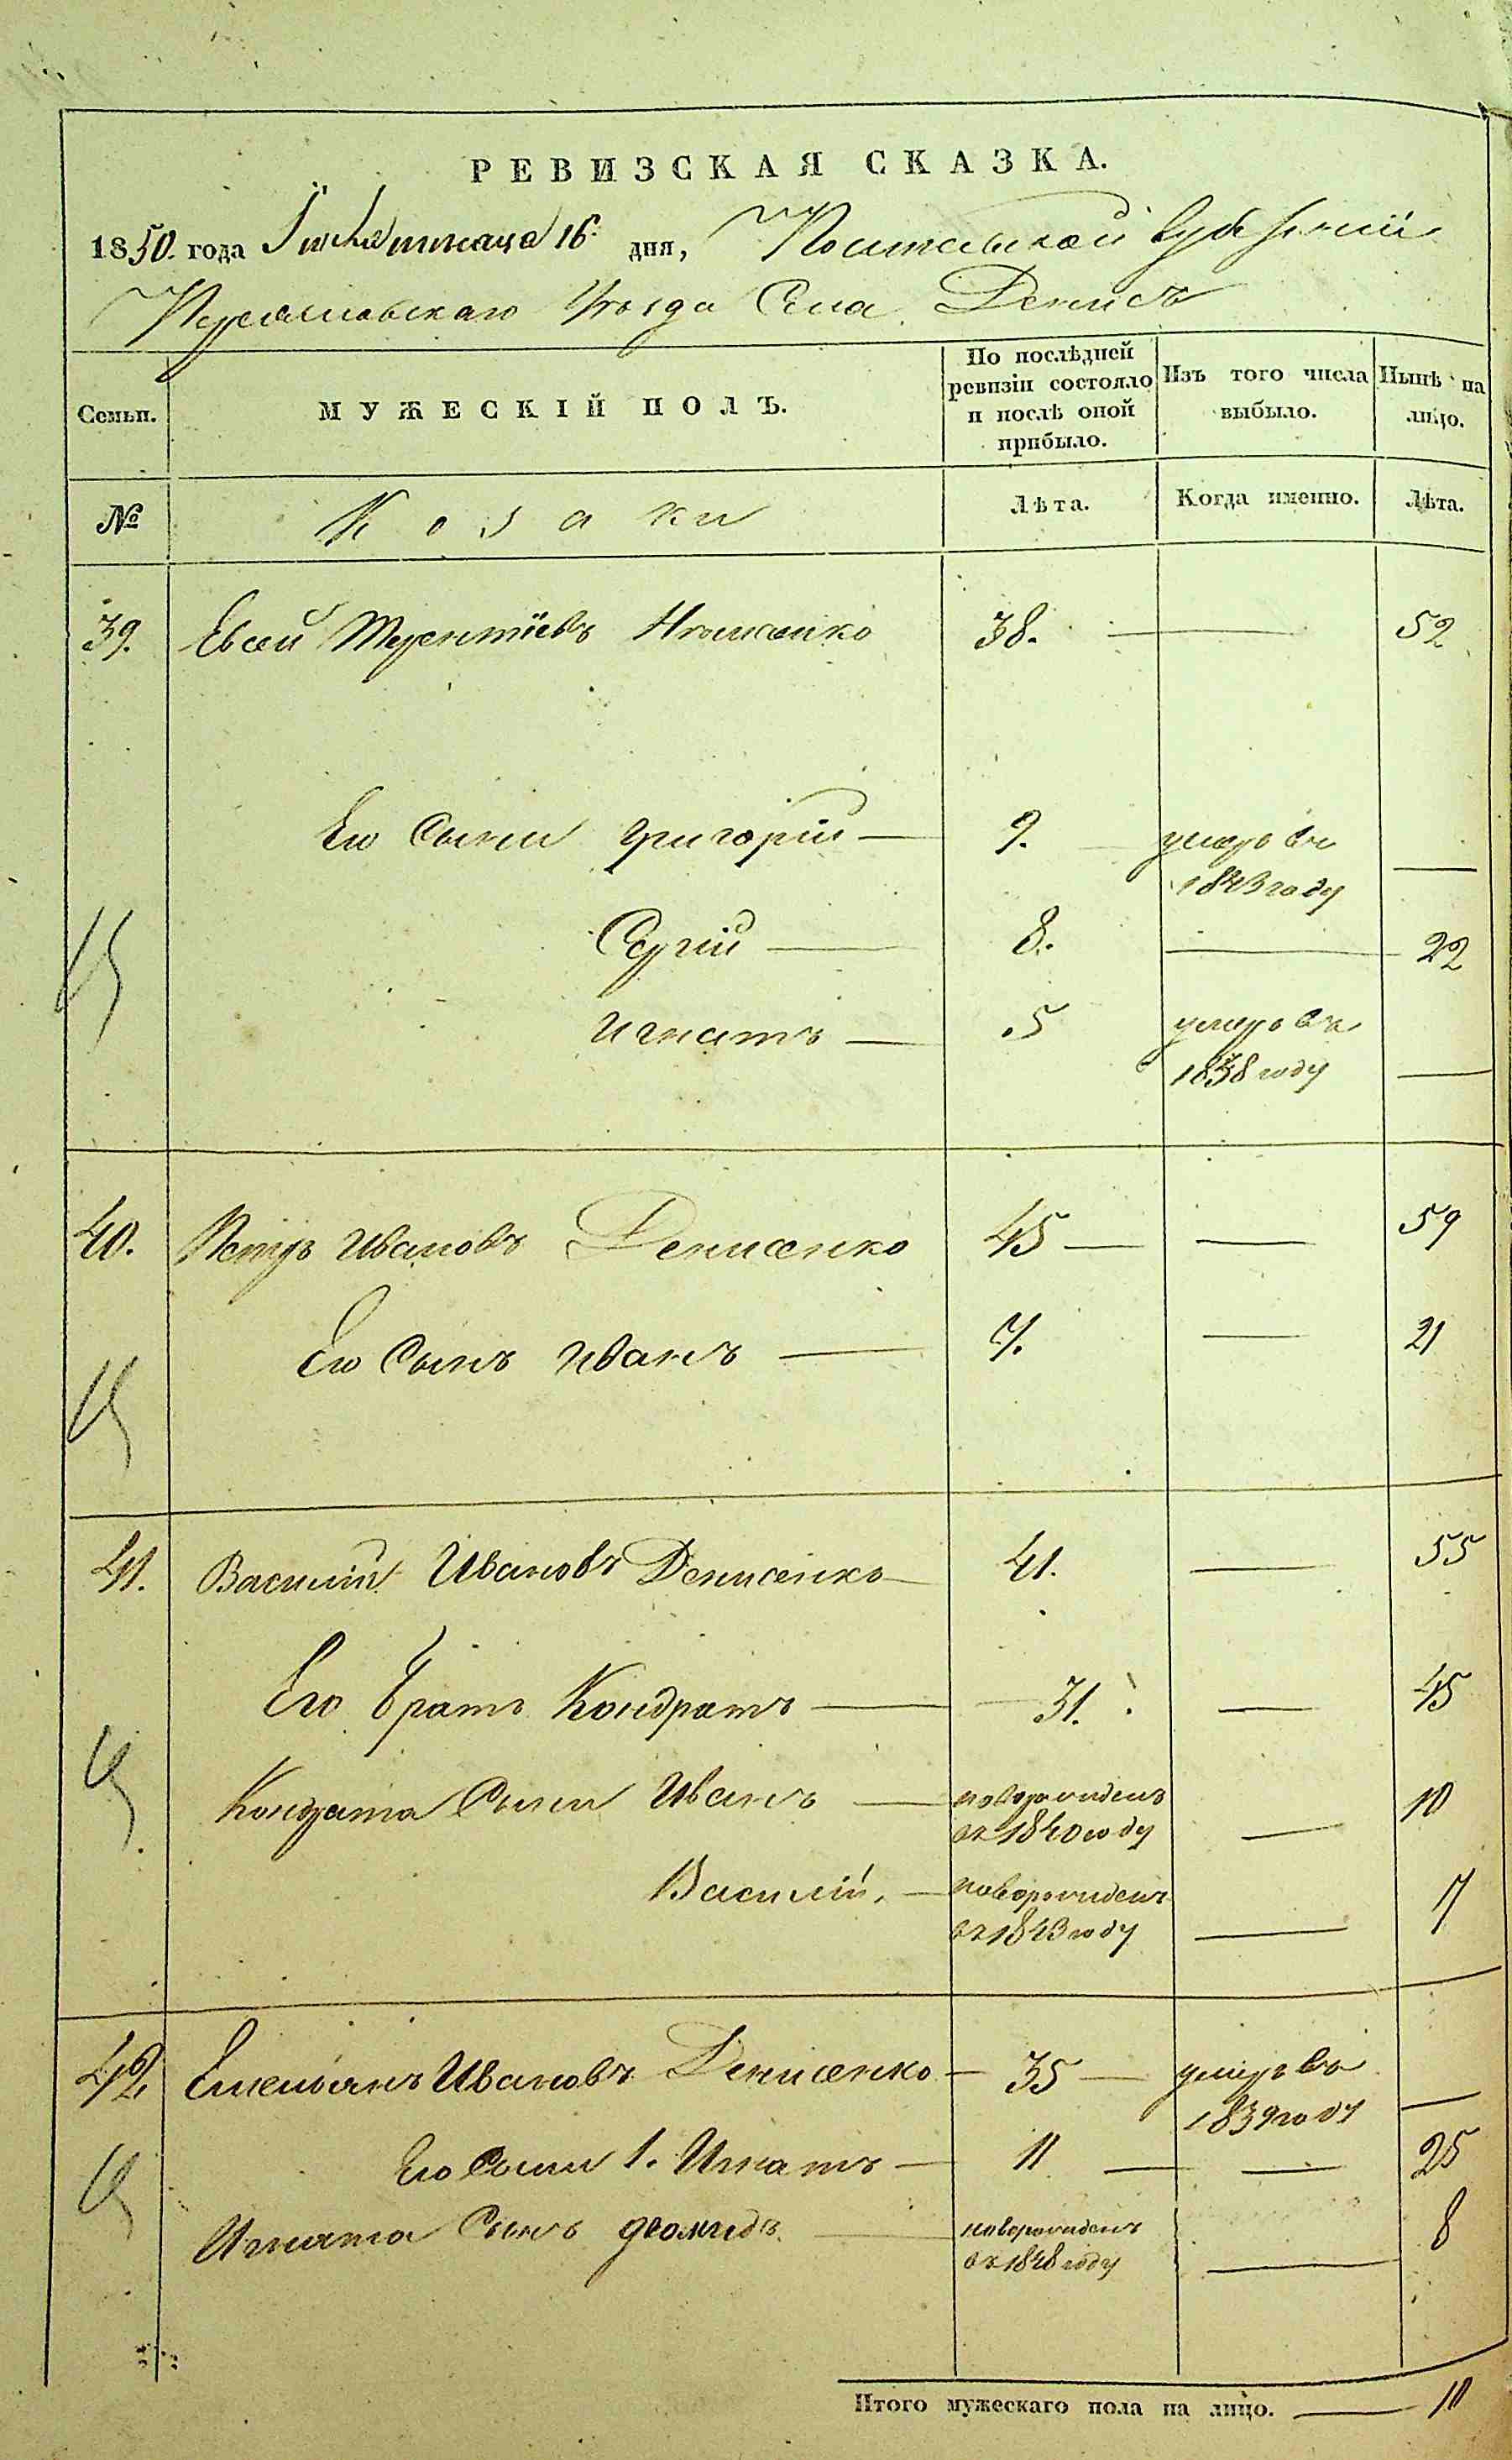 РЕВИЗСКАЯ СКАЗКА.
1850. года мѣсяца 16. дня, Полтавской Губерніи
Переяславскаго Уѣзда Села Денисъ
Семьи. МУЖЕСКІЙ ПОЛЪ. По послѣдней ревизіи состояло и послѣ оной прибыло. Изъ того числа выбыло. Нынѣ на лицо.
№ Козаки Лѣта. Когда именно. Лѣта.
39. Евсей Терентіевъ 38. — 52
Его Сыни Григорій — 9. умеръ въ 1843 году —
Сергій — 8. — 22
Игнатъ — 5 умеръ въ 1838 году —
40. Петръ Ивановъ Денисенко 45 — — 59
Его Сынъ Иванъ — 7. — 21
41. Василій Ивановъ Денисенко — 41. — 55
Его братъ Кондратъ — 31. — 45
Кондрата Сыни Иванъ — новорожденъ въ 1840 году — 10
Василій. — новорожденъ въ 1843 году — 7
42 Емельянъ Ивановъ Денисенко — 35 — умеръ въ 1839 году —
Его Сыни 1. Игнатъ — 11 — — 25
Игната Сынъ Деомидъ — новорожденъ въ году — 8
Итого мужескаго пола на лицо. — 10